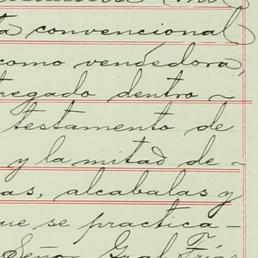 a convencional
como vendedora,
tregado dentro -
testamento de
y la mitad de-
as, alcabalas y
ue se practica-
Señor Gral Frías